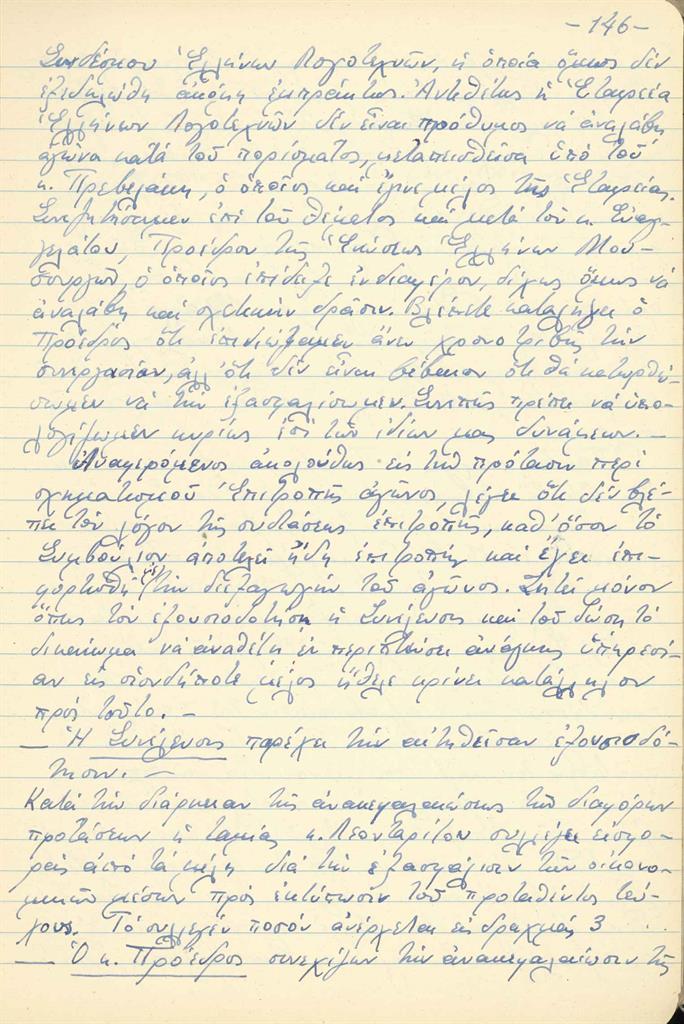 -146-
Συνδέσμου Ἑλλήνων Λογοτεχνῶν, ἡ ὁποία ὅμως δέν
ἐξεδηλώθη ἀκόμη ἐμπράκτως. Ἀντιθέτως ἡ Ἑταιρεία
Ἑλλήνων Λογοτεχνῶν δέν εἶναι πρόθυμος νά ἀναλάβῃ
ἀγῶνα κατά τοῦ πορίσματος, μεταπεισθεῖσα ὑπό τοῦ
κ. Πρεβελάκη, ὁ ὁποῖος καί ἔγινε μέλος τῆς Ἑταιρείας.
Συνεζητήσαμεν ἐπί τοῦ θέματος καί μετά τοῦ κ. Εὐαγ-
γελάτου, Προέδρου τῆς Ἑνώσεως Ἑλλήνων Μου-
σουργῶν, ὁ ὁποῖος ἐπέδειξε ἐνδιαφέρον, δίχως ὅμως νά
ἀναλάβῃ καί σχετικήν δρᾶσιν. Βλέπετε καταλήγει ὁ
Πρόεδρος ὅτι ἐπεδιώξαμεν ἄνευ χρονοτριβῆς τήν
συνεργασίαν, ἀλλ' ὅτι δέν εἶναι βέβαιον ὅτι θά κατορθώ-
σωμεν νά τήν ἐξασφαλίσωμεν. Συνεπῶς πρέπει νά ὑπο-
λογίζωμεν κυρίως ἐπί τῶν ἰδίων μας δυνάμεων. —
Ἀναφερόμενος ἀκολούθως εἰς τήν πρότασιν περί
σχηματισμοῦ Ἐπιτροπῆς ἀγῶνος, λέγει ὅτι δέν βλέ-
πει τόν λόγον τῆς συστάσεως ἐπιτροπῆς, καθ' ὅσον τό
Συμβούλιον ἀποτελεῖ ἤδη ἐπιτροπήν καί ἔχει ἐπι-
φορτισθῆ μέ τήν διεξαγωγήν τοῦ ἀγῶνος. Ζητεῖ μόνον
ὅπως τόν ἐξουσιοδοτήσῃ ἡ Συνέλευσις καί τοῦ δώσῃ τό
δικαίωμα νά ἀναθέτῃ ἐν περιπτώσει ἀνάγκης ὑπηρεσί-
αν εἰς οἱονδήποτε μέλος ἤθελε κρίνει κατάλληλον
πρός τοῦτο. —
— Ἡ Συνέλευσις παρέχει τήν αἰτηθεῖσαν ἐξουσιοδό-
τησιν. —
Κατά τήν διάρκειαν τῆς ἀνακεφαλαιώσεως τῶν διαφόρων
προτάσεων ἡ ταμίας κ. Λεονταρίτου συλλέγει εἰσφο-
ράς ἀπό τά μέλη διά τήν ἐξασφάλισιν τῶν οἰκονο-
μικῶν μέσων πρός ἐκτύπωσιν τοῦ προταθέντος τεύ-
χους. Τό συλλεγέν ποσόν ἀνέρχεται εἰς δραχμάς 3 ..
— Ὁ κ. Πρόεδρος συνεχίζων τήν ἀνακεφαλαίωσιν τῆς